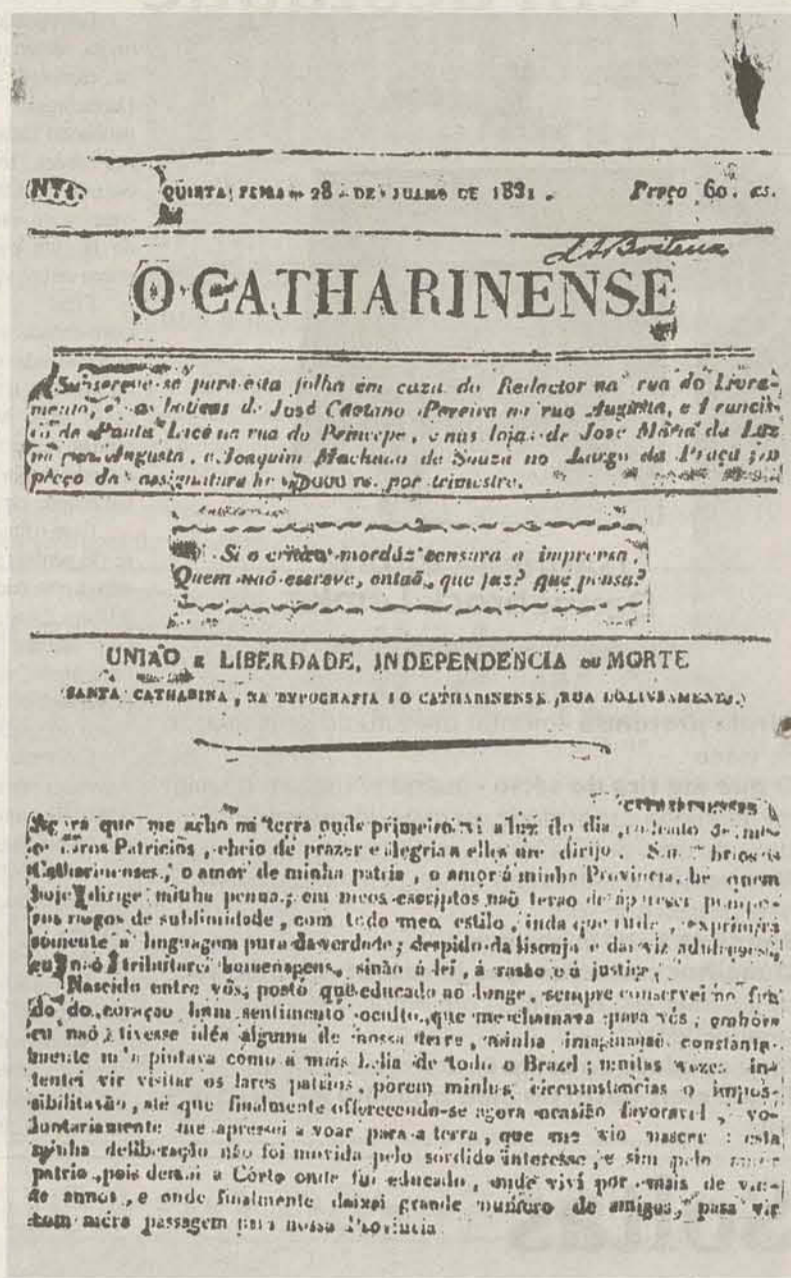 QUINTA FEIRA 28 DE JULHO DE 1831. Preço 60. rs.
O CATHARINENSE
Subscreve-se para esta folha em caza do Redactor na rua do Livra-
mento, e as boticas de José Caetano Pereira na rua Augusta, e Francis-
co de Paula na rua do Principe, e nas lojas de José Maria da Luz
na rua Augusta, e Joaquim Machado de Souza no Largo da Praça;
preço da assignatura he por trimestre.
Si o critico mordáz censura a imprensa,
Quem naõ escreve, entaõ, que faz? que pensa?
UNIAÕ E LIBERDADE, INDEPENDENCIA OU MORTE
SANTA CATHARINA, NA TYPOGRAFIA DO CATHARINENSE, RUA DO LIVRAMENTO.
que me acho na terra onde primeiro vi a luz do dia, rodeado de
caros Patricios, cheio de prazer e alegria a elles me dirijo. Sim
Catharinenses, o amor de minha patria, o amor á minha Provincia, he quem
hoje dirige minha penna; em meos escriptos naõ
de sublimidade, com todo meo estilo, inda que rude, exprimirá
sómente a linguagem pura da verdade; despido da lisonja e da
eu naõ tributarei homenagens, sinão á lei, á rasão e á justiça,
Nascido entre vós, posto que educado ao longe, sempre conservei no fun-
do do coraçao hum sentimento occulto, que me chamava para vós; embóra
eu naõ tivesse idéa alguma de nossa terra, minha imaginaçaõ constante-
mente m'a pintava como a mais bella de todo o Brazil; muitas vezes in-
tentei vir visitar os lares patrios, porem minhas circumstancias o impos-
sibilitavão, até que finalmente offerecendo-se agora occasião favoravel, vo-
luntariamente me apressei a voar para a terra, que me vio nascer: esta
minha deliberação não foi movida pelo sordido interesse, e sim pelo amor
patrio, pois deixei a Côrte onde fui educado, onde vivi por mais de vin-
te annos, e onde finalmente deixei grande numero de amigos, para vir
com méra passagem para nossa Provincia